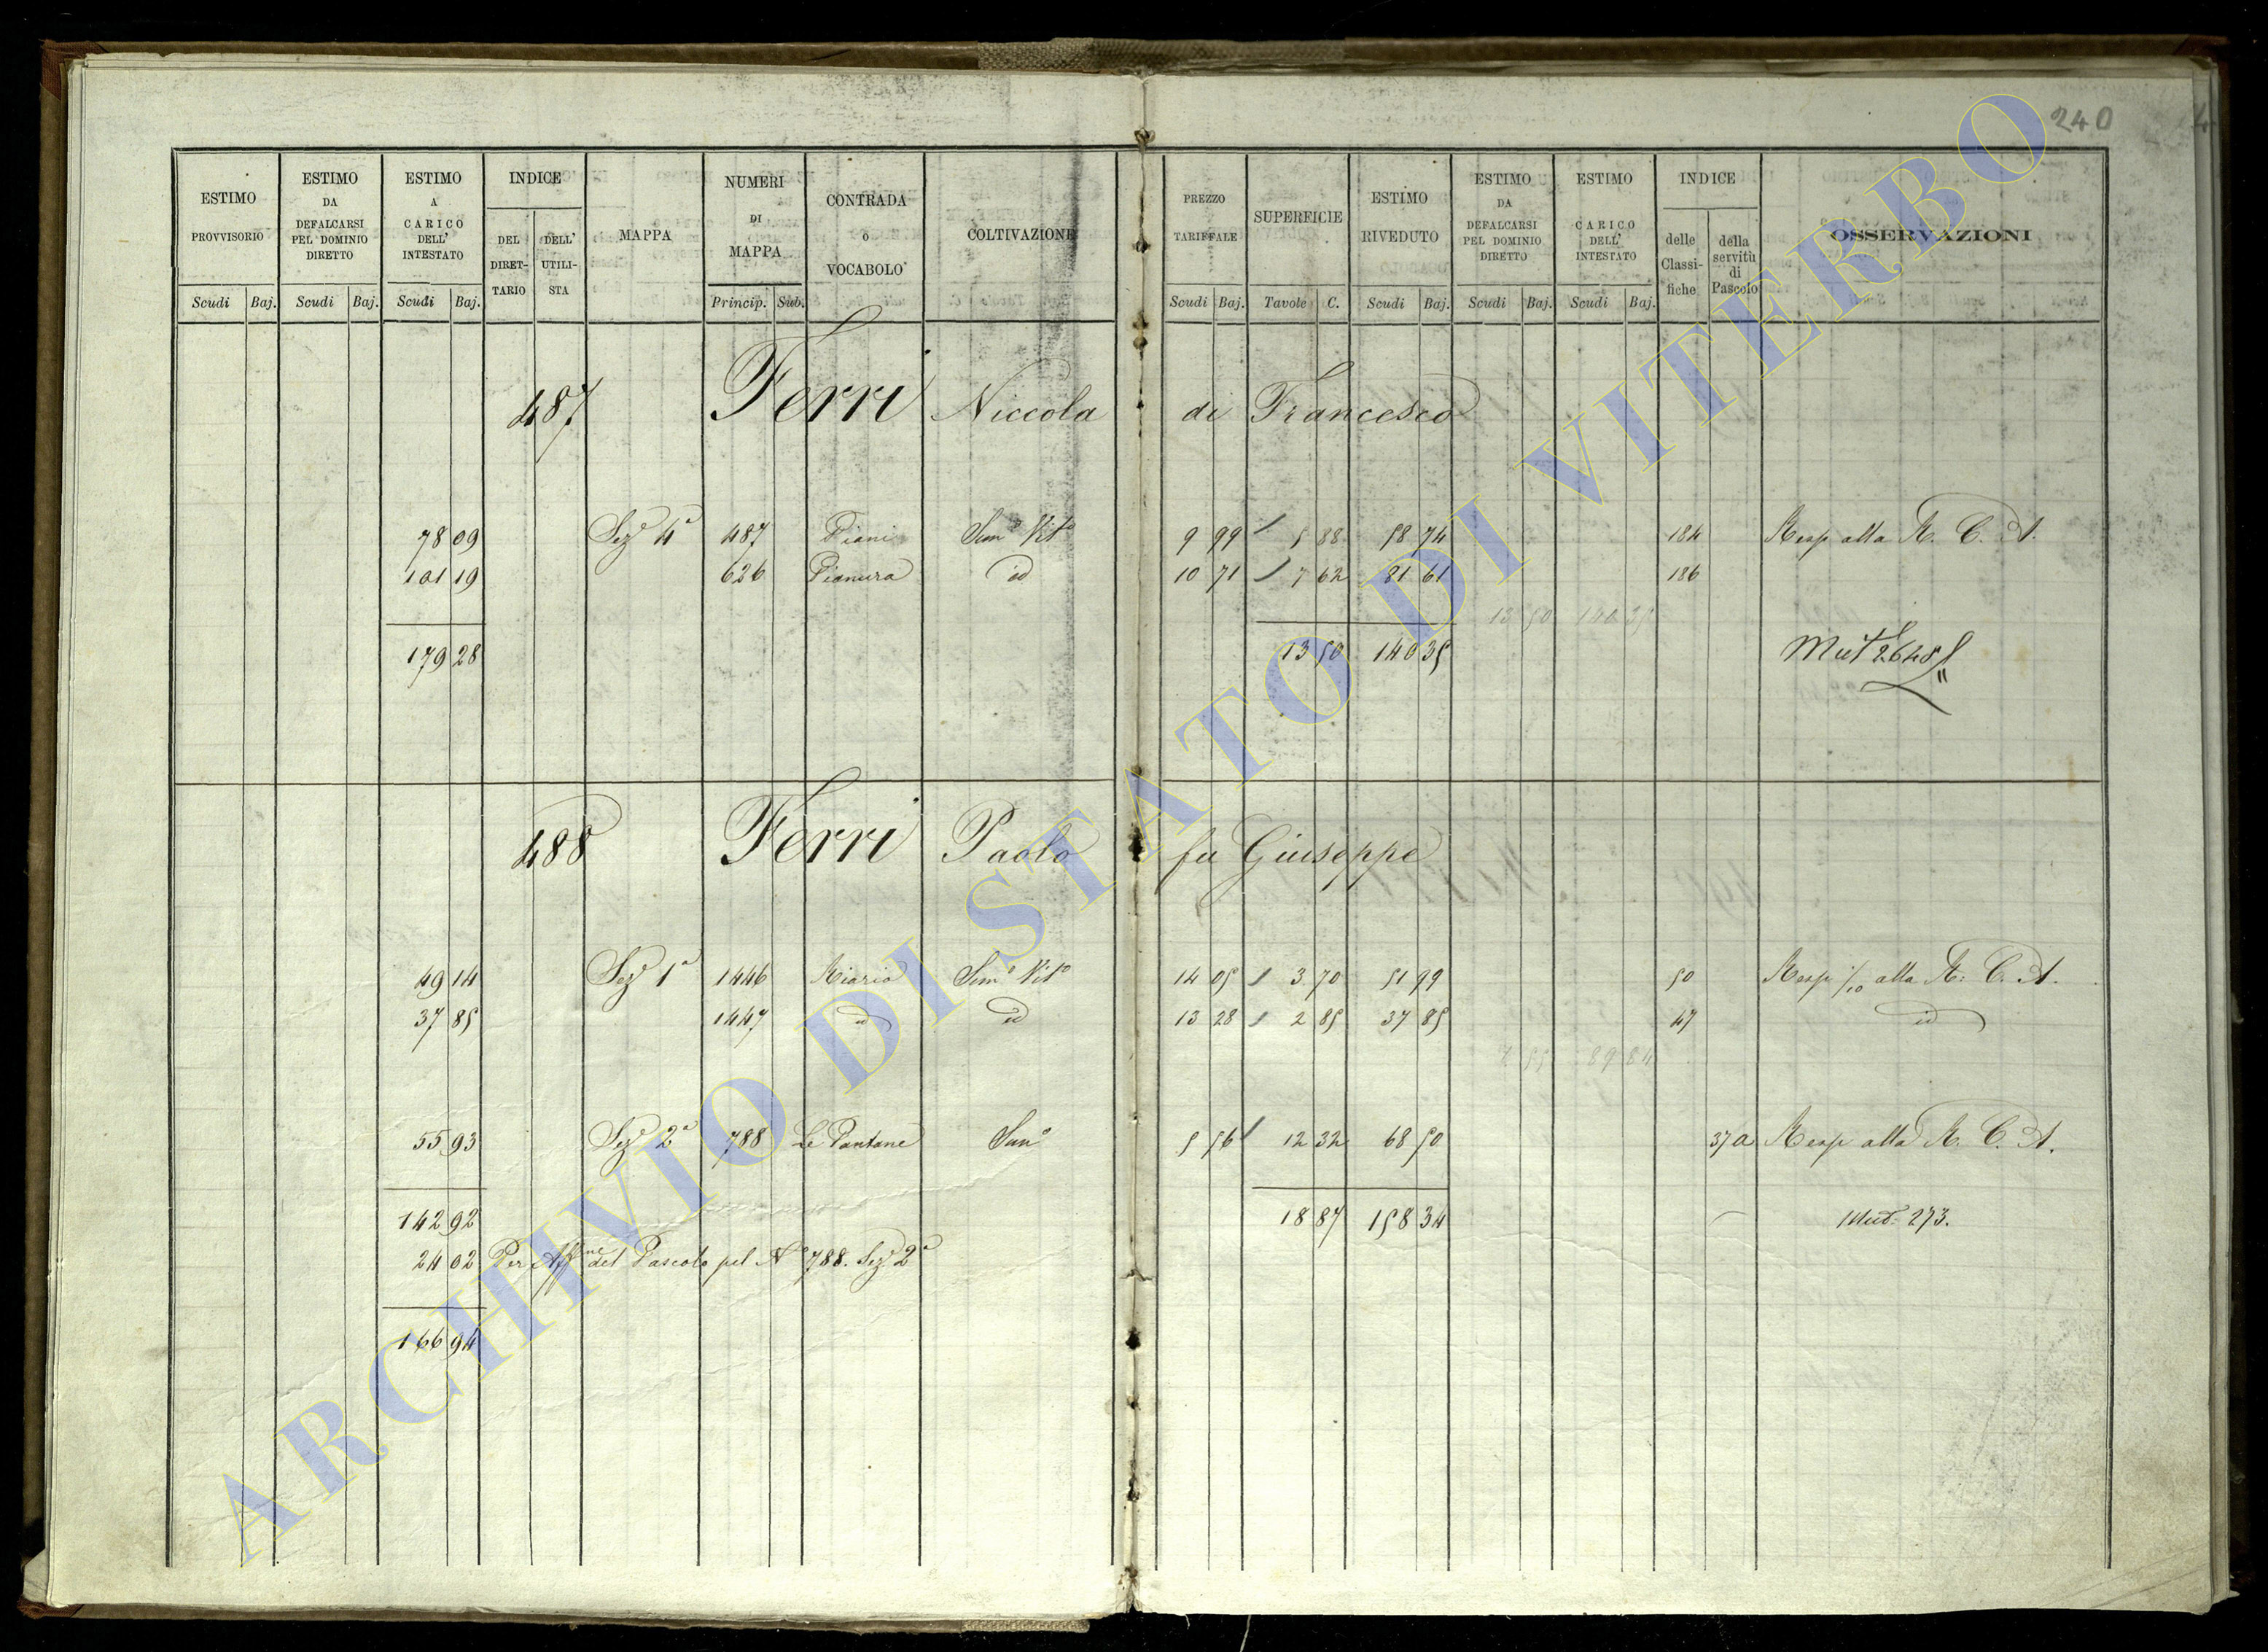 240
ESTIMO PROVVISORIO
Scudi Baj.
ESTIMO DA DEFALCARSI PEL DOMINIO DIRETTO
Scudi Baj.
ESTIMO A CARICO DELL' INTESTATO
Scudi Baj.
INDICE
DEL DIRET-TARIO
DELL' UTILI-STA
MAPPA
NUMERI DI MAPPA
Princip. Sub.
CONTRADA O VOCABOLO
COLTIVAZIONE
PREZZO TARIFFALE
Scudi Baj.
SUPERFICIE
Tavole C.
ESTIMO RIVEDUTO
Scudi Baj.
ESTIMO DA DEFALCARSI PEL DOMINIO DIRETTO
Scudi Baj.
ESTIMO CARICO DELL' INTESTATO
Scudi Baj.
INDICE
delle Classi-fiche
della servitù di Pascolo
OSSERVAZIONI
487 Ferri Niccola di Francesco
78 09 Sez 4ª 487 Piani Semº Vitº 9 99 5 88 58 74 184 Resp alla R. C. A.
101 19 626 Pianura id 10 71 7 62 81 61 186
13 50 140 35
179 28 13 50 140 35 Mut 2648
488 Ferri Paolo fu Giuseppe
49 14 Sez 1ª 1446 Riario Semº Vitº 14 05 3 70 51 99 50 Resp 1/10 alla R. C. A.
37 85 1447 id id 13 28 2 85 37 85 47 id
89 84
55 93 Sez 2ª 788 Le Pantane Semº 5 56 12 32 68 50 37 a Resp alla R. C. A.
142 92 18 87 158 34 Mut. 273.
24 02 Per Affne del Pascolo pel Nº 788. Sez 2ª
166 94
ARCHIVIO DI STATO DI VITERBO